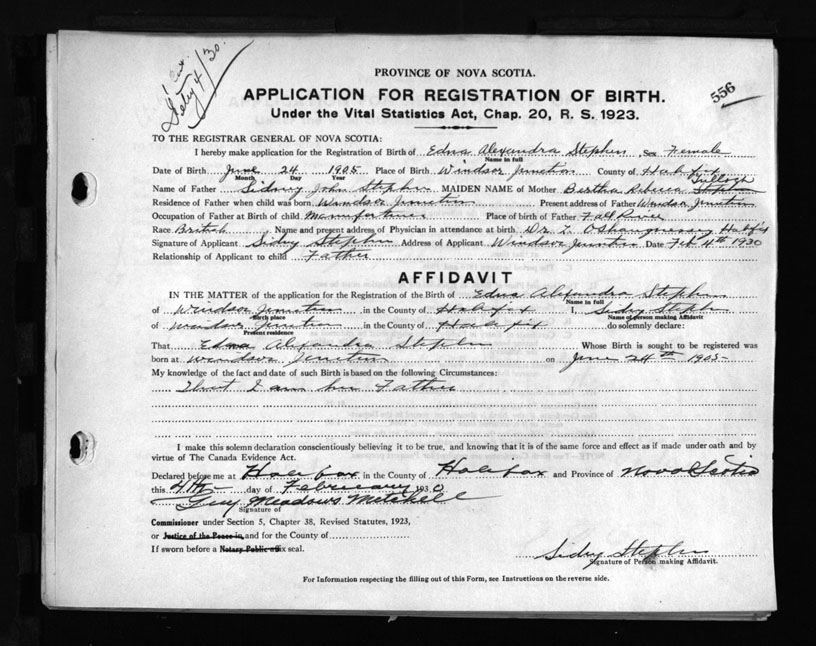 Feby 4/30.
PROVINCE OF NOVA SCOTIA.
556
APPLICATION FOR REGISTRATION OF BIRTH.
Under the Vital Statistics Act, Chap. 20, R. S. 1923.
TO THE REGISTRAR GENERAL OF NOVA SCOTIA:
I hereby make application for the Registration of Birth of Edna Alexandra Stephen Sex Female
Name in full
Date of Birth June 24 1905 Place of Birth Windsor Junction County of Halifax
Month Day Year
Name of Father Sidney John Stephen MAIDEN NAME of Mother Bertha Rebecca
Residence of Father when child was born Windsor Junction Present address of Father Windsor Junction
Occupation of Father at Birth of child Place of birth of Father Fall River
Race British Name and present address of Physician in attendance at birth Dr. O'Shaughnessy Halifx
Signature of Applicant Sidny Stephn Address of Applicant Windsor Junction Date Feb 4th 1930
Relationship of Applicant to child Father
AFFIDAVIT
IN THE MATTER of the application for the Registration of the Birth of Edna Alexandra Stephen
Name in full
of Windsor Junction in the County of Halifax I, Sidny Stephn
Birth place Name of person making Affidavit
of Windsor Junction in the County of Halifax do solemnly declare:
Present residence
That Edna Alexandra Stephen Whose Birth is sought to be registered was
born at Windsor Junction on June 24th 1905
My knowledge of the fact and date of such Birth is based on the following Circumstances:
That I am her Father
I make this solemn declaration conscientiously believing it to be true, and knowing that it is of the same force and effect as if made under oath and by
virtue of The Canada Evidence Act.
Declared before me at Halifax in the County of Halifax and Province of Nova Scotia
this 4th day of February 1930
Guy Meadows Mitchell
Signature of
Commissioner under Section 5, Chapter 38, Revised Statutes, 1923,
or Justice of the Peace in and for the County of
If sworn before a Notary Public affix seal.
Sidny Stephn
Signature of Person making Affidavit.
For Information respecting the filling out of this Form, see Instructions on the reverse side.